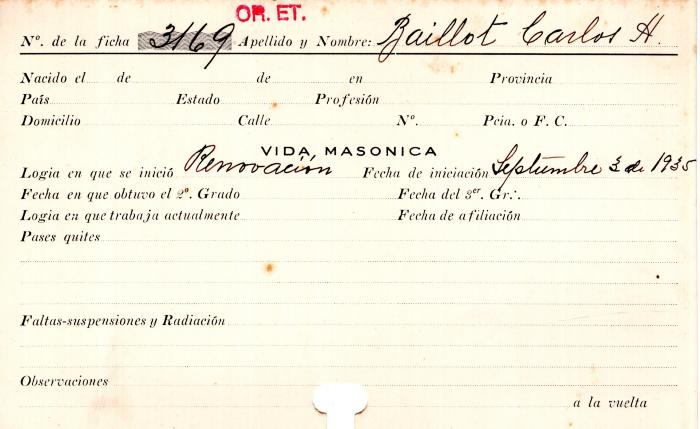 OR. ET.
Nº. de la ficha 3169 Apellido y Nombre: Baillot Carlos H.
Nacido el de de en Provincia
País Estado Profesión
Domicilio Calle Nº. Pcia. o F. C.
VIDA MASONICA
Logia en que se inició Renovación Fecha de iniciación Septiembre 3 de 1935
Fecha en que obtuvo el 2º. Grado Fecha del 3er. Gr∴.
Logia en que trabaja actualmente Fecha de afiliación
Pases quites
Faltas-suspensiones y Radiación
Observaciones
a la vuelta